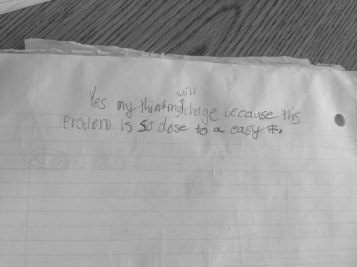 will
Yes my thinking chage because this
Problem is so close to a easy #.